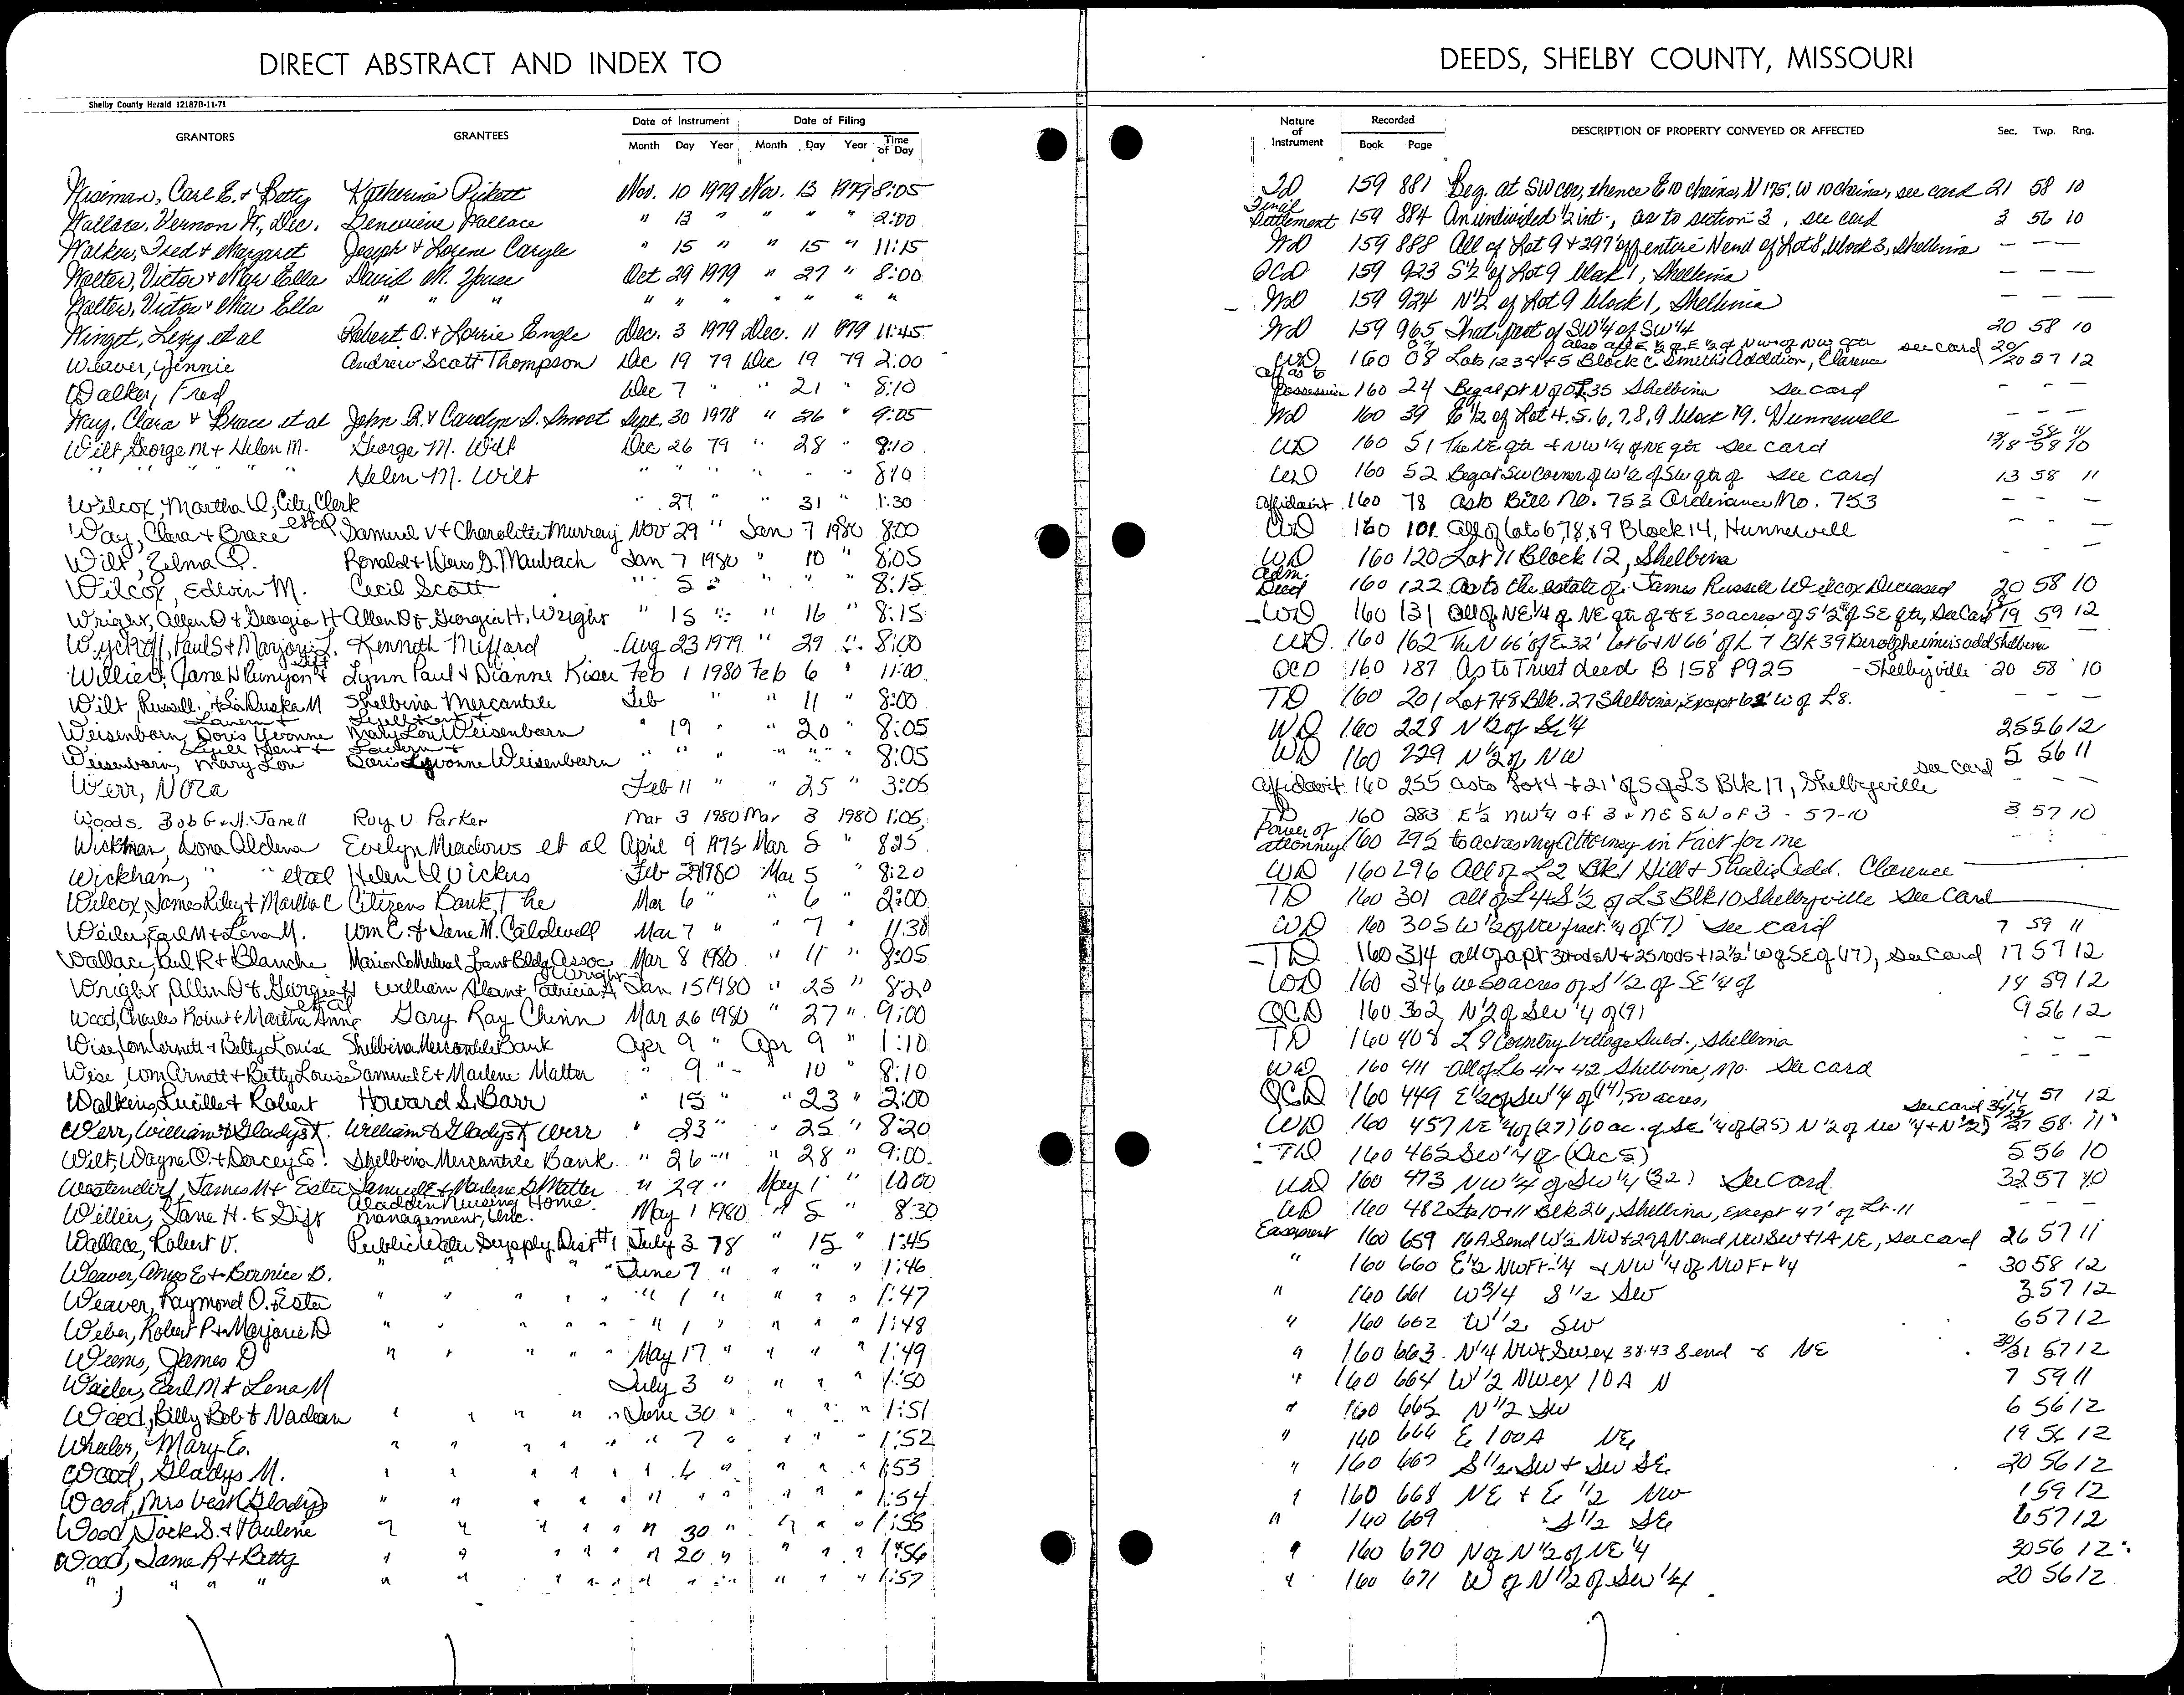 DIRECT ABSTRACT AND INDEX TO
Shelby County Herald 12187B-11-71
GRANTORS GRANTEES Date of Instrument Date of Filing
Month Day Year Month Day Year Time of Day
Wiseman, Carl E. & Betty Katherine Pickett Nov. 10 1979 Nov. 13 1979 8:05
Wallace, Vernon H., Dec. Genevieve Wallace " 13 " " " " 2:00
Walker, Fred & Margaret Joseph & Lorene Caryle " 15 " " 15 " 11:15
Walter, Victor & Mae Ella David M. House Oct 29 1979 " 27 " 8:00
Walter, Victor & Mae Ella " " " " " " " " " "
Wingot, Levy et al Robert O. & Lorrie Engle Dec. 3 1979 Dec. 11 1979 11:45
Weaver, Jennie Andrew Scott Thompson Dec 19 79 Dec 19 79 2:00
Walker, Fred Dec 7 " " 21 " 8:10
Way, Clara & Brace et al John R. & Carolyn S. Smoot Sept. 30 1978 " 26 " 9:05
Wilt, George M & Helen M. George M. Wilt Dec 26 79 " 28 " 8:10
" " " " Helen M. Wilt " " " " " " 810
Wilcox, Martha O, City Clerk " 27 " " 31 " 1:30
Way, Clara & Brace et al Samuel V & Charolitte Murray Nov 29 " Jan 7 1980 8:00
Wilt, Zelma O. Ronald & Doris G. Maubach Jan 7 1980 " 10 " 8:05
Wilcox, Edwin M. Cecil Scott " 5 " " " " 8:15
Wright, Allen D & Georgia H Allen D & Georgia H. Wright " 15 " " 16 " 8:15
Wyckoff, Paul S & Marjory L. Kenneth Mifford Aug 23 1979 " 29 " 8:00
Willier, Jane H Runyon & Gift Lynn Paul & Dianne Kiser Feb 1 1980 Feb 6 " 11:00
Wilt, Russell & LaDuska M Shelbina Mercantile Feb " " 11 " 8:00
Weisenborn, Lavern & Doris Yvonne Lyell Kent & Mary Lou Weisenborn " 19 " " 20 " 8:05
Weisenborn, Lyell Kent & Mary Lou Lavern & Doris Yvonne Weisenborn " " " " " " 8:05
Werr, Nora Feb 11 " " 25 " 3:05
Woods, Bob G & N. Janell Roy V. Parker Mar 3 1980 Mar 3 1980 1:05
Wickham, Lona Aldena Evelyn Meadows et al April 9 1975 Mar 5 " 825
Wickham, " " etal Helen O Vickus Feb 29 1980 Mar 5 " 8:20
Wilcox, James Riley & Martha C Citizens Bank, The Mar 6 " " 6 " 2:00
Weiler, Earl M & Lena M. Wm E. & Jane M. Caldwell Mar 7 " " 7 " 11:30
Wallace, Paul R & Blanche Marion Co Mutual Loan & Bldg Assoc Mar 8 1980 " 11 " 8:05
Wright, Allin D & Gargia H William Alan & Patricia A Wright Jan 15 1980 " 25 " 8:20
Wood, Charles Robert & Martha Anne et al Gary Ray Chinn Mar 26 1980 " 27 " 9:00
Wise, Wm Arnett & Betty Louise Shelbina Mercantile Bank Apr 9 " Apr 9 " 1:10
Wise, Wm Arnett & Betty Louise Samuel E & Marlene Matter " 9 " " 10 " 8:10
Watkins, Lucille & Robert Howard S. Barr " 15 " " 23 " 2:00
Werr, William & Gladys K. William & Gladys K Werr " 23 " " 25 " 8:20
Wilt, Wayne O. & Dorcey E. Shelbina Mercantile Bank " 26 " " 28 " 9:00
Westendorf, James M & Ester Samuel E & Marlene S Matter " 29 " May 1 " 10:00
Willier, Jane H. & Gift Aladdin Nursing Home Management, Inc. May 1 1980 " 5 " 8:30
Wallace, Robert V. Public Water Supply Dist #1 July 3 78 " 15 " 1:45
Weaver, Amos E & Bernice B. " " " " June 7 " " " " 1:46
Weaver, Raymond O. & Ester " " " " " 1 " " " " 1:47
Weber, Robert P & Marjorie D " " " " " 1 " " " " 1:48
Weems, James D " " " " May 17 " " " " 1:49
Weiler, Earl M & Lena M July 3 " " " " 1:50
Wood, Billy Bob & Nadean " " " " June 30 " " " " 1:51
Wheeler, Mary E. " " " " " 7 " " " " 1:52
Wood, Gladys M. " " " " " 6 " " " " 1:53
Wood, Mrs Veat (Gladys) " " " " " " " " " " 1:54
Wood, Jack S. & Paulene " " " " " 30 " " " " 1:55
Wood, Lama R & Betty " " " " " 20 " " " " 1:56
" " " " " " " " " " " " " " 1:57
DEEDS, SHELBY COUNTY, MISSOURI
Nature of Instrument Recorded Book Page DESCRIPTION OF PROPERTY CONVEYED OR AFFECTED Sec. Twp. Rng.
TD 159 881 Beg. at SW cor, thence E 10 chains, N 175. W 10 chains, see card 21 58 10
Final Settlement 159 884 An undivided 1/2 int., as to section 3, see card 3 56 10
WD 159 888 All of Lot 9 & 297' off entire N end of Lot 8, block 3, Shelbina - - -
QCD 159 923 S 1/2 of Lot 9 block 1, Shelbina - - -
WD 159 924 N 1/2 of Lot 9 block 1, Shelbina - - -
WD 159 965 That part of SW 1/4 of SW 1/4 20 58 10
WD 160 08 Lots 1 2 3 4 & 5 Block C Smith's Addition, Clarence also all E 1/2 of E 1/2 of NW of NW qtr see card 20/20 57 12
aff as to Possession 160 24 Beg at pt N of OL 35 Shelbina see card - - -
WD 160 39 E 1/2 of Lot 4.5.6,7,8,9 block 19. Hunnewell - - -
WD 160 51 The NE qtr & NW 1/4 of NE qtr see card 13/18 58/58 11/10
WD 160 52 Beg at SW Corner of W 1/2 of SW qtr of see card 13 58 11
Affidavit 160 78 As to Bill No. 753 Ordinance No. 753 - - -
WD 160 101 All of Lots 6,7,8,&9 Block 14, Hunnewell - - -
WD 160 120 Lot 11 Block 12, Shelbina - - -
Adm. Deed 160 122 As to the estate of James Russell Wilcox Deceased 20 58 10
WD 160 131 All of NE 1/4 of NE qtr of & E 30 acres of S 1/2 of SE qtr, See Card 19 59 12
WD. 160 162 The N 66' of E 32' Lot 6 & N 66' of L 7 Blk 39 Kerolzheimers add Shelbina
QCD 160 187 As to Trust deed B 158 P925 - Shelbyville 20 58 10
TD 160 201 Lot 7 & 8 Blk. 27 Shelbina, Except 62' W of L8. - - -
WD 160 228 N 1/2 of SE 1/4 25 56 12
WD 160 229 N 1/2 of NW 5 56 11
Affidavit 160 255 as to Lot 4 & 21' of S of L3 Blk 17, Shelbyville see card - - -
TD 160 283 E 1/2 NW 1/4 of 3 & NE SW of 3 - 57-10 3 57 10
Power of attorney 160 295 to act as my Attorney in Fact for me
WD 160 296 All of L2 Bk 1 Hill & Add. Clarence
TD 160 301 all of L4 & S 1/2 of L3 Blk 10 Shelbyville See Card
WD 160 305 W 1/2 of NW fract. 1/4 of (7) see card 7 59 11
TD 160 314 all of a pt 30 rods N & 25 rods & 12 1/2' W of SE of (17), see Card 17 57 12
WD 160 346 W 50 acres of S 1/2 of SE 1/4 of 14 59 12
QCD 160 362 N 1/2 of SW 1/4 of (9) 9 56 12
TD 160 408 L 9 Country Village Subd., Shelbina - - -
WD 160 411 All of L 6 41 & 42 Shelbina, Mo. See card - - -
QCD 160 449 E 1/2 of SW 1/4 of (14), 50 acres, 14 57 12
WD 160 457 NE 1/4 of (27) 60 ac. of SE 1/4 of (25) N 1/2 of NW 1/4 & N 1/2 See card 27 58 11
TD 160 465 SW 1/4 of (Sec 5) 5 56 10
WD 160 473 NW 1/4 of SW 1/4 (32) See Card 32 57 10
WD 160 482 Lts 10 & 11 Blk 26, Shelbina, Except 47' of Lt. 11 - - -
Easement 160 659 16A S end W 1/2 NW & 29A N end NW SW & 1A NE, see card 26 57 11
" 160 660 E 1/2 NW Fr 1/4 & NW 1/4 of NW Fr 1/4 30 58 12
" 160 661 W 3/4 S 1/2 SW 3 57 12
" 160 662 W 1/2 SW 6 57 12
" 160 663 N 1/4 NW & SW ex 38.43 S end & NE 30/31 57 12
" 160 664 W 1/2 NW ex 10A N 7 59 11
" 160 665 N 1/2 SW 6 56 12
" 160 666 E 100A NE 19 56 12
" 160 667 S 1/2 SW & SW SE 20 56 12
" 160 668 NE & E 1/2 NW 1 59 12
" 160 669 S 1/2 SE 6 57 12
" 160 670 N of N 1/2 of NE 1/4 30 56 12
" 160 671 W of N 1/2 of SW 1/4 20 56 12